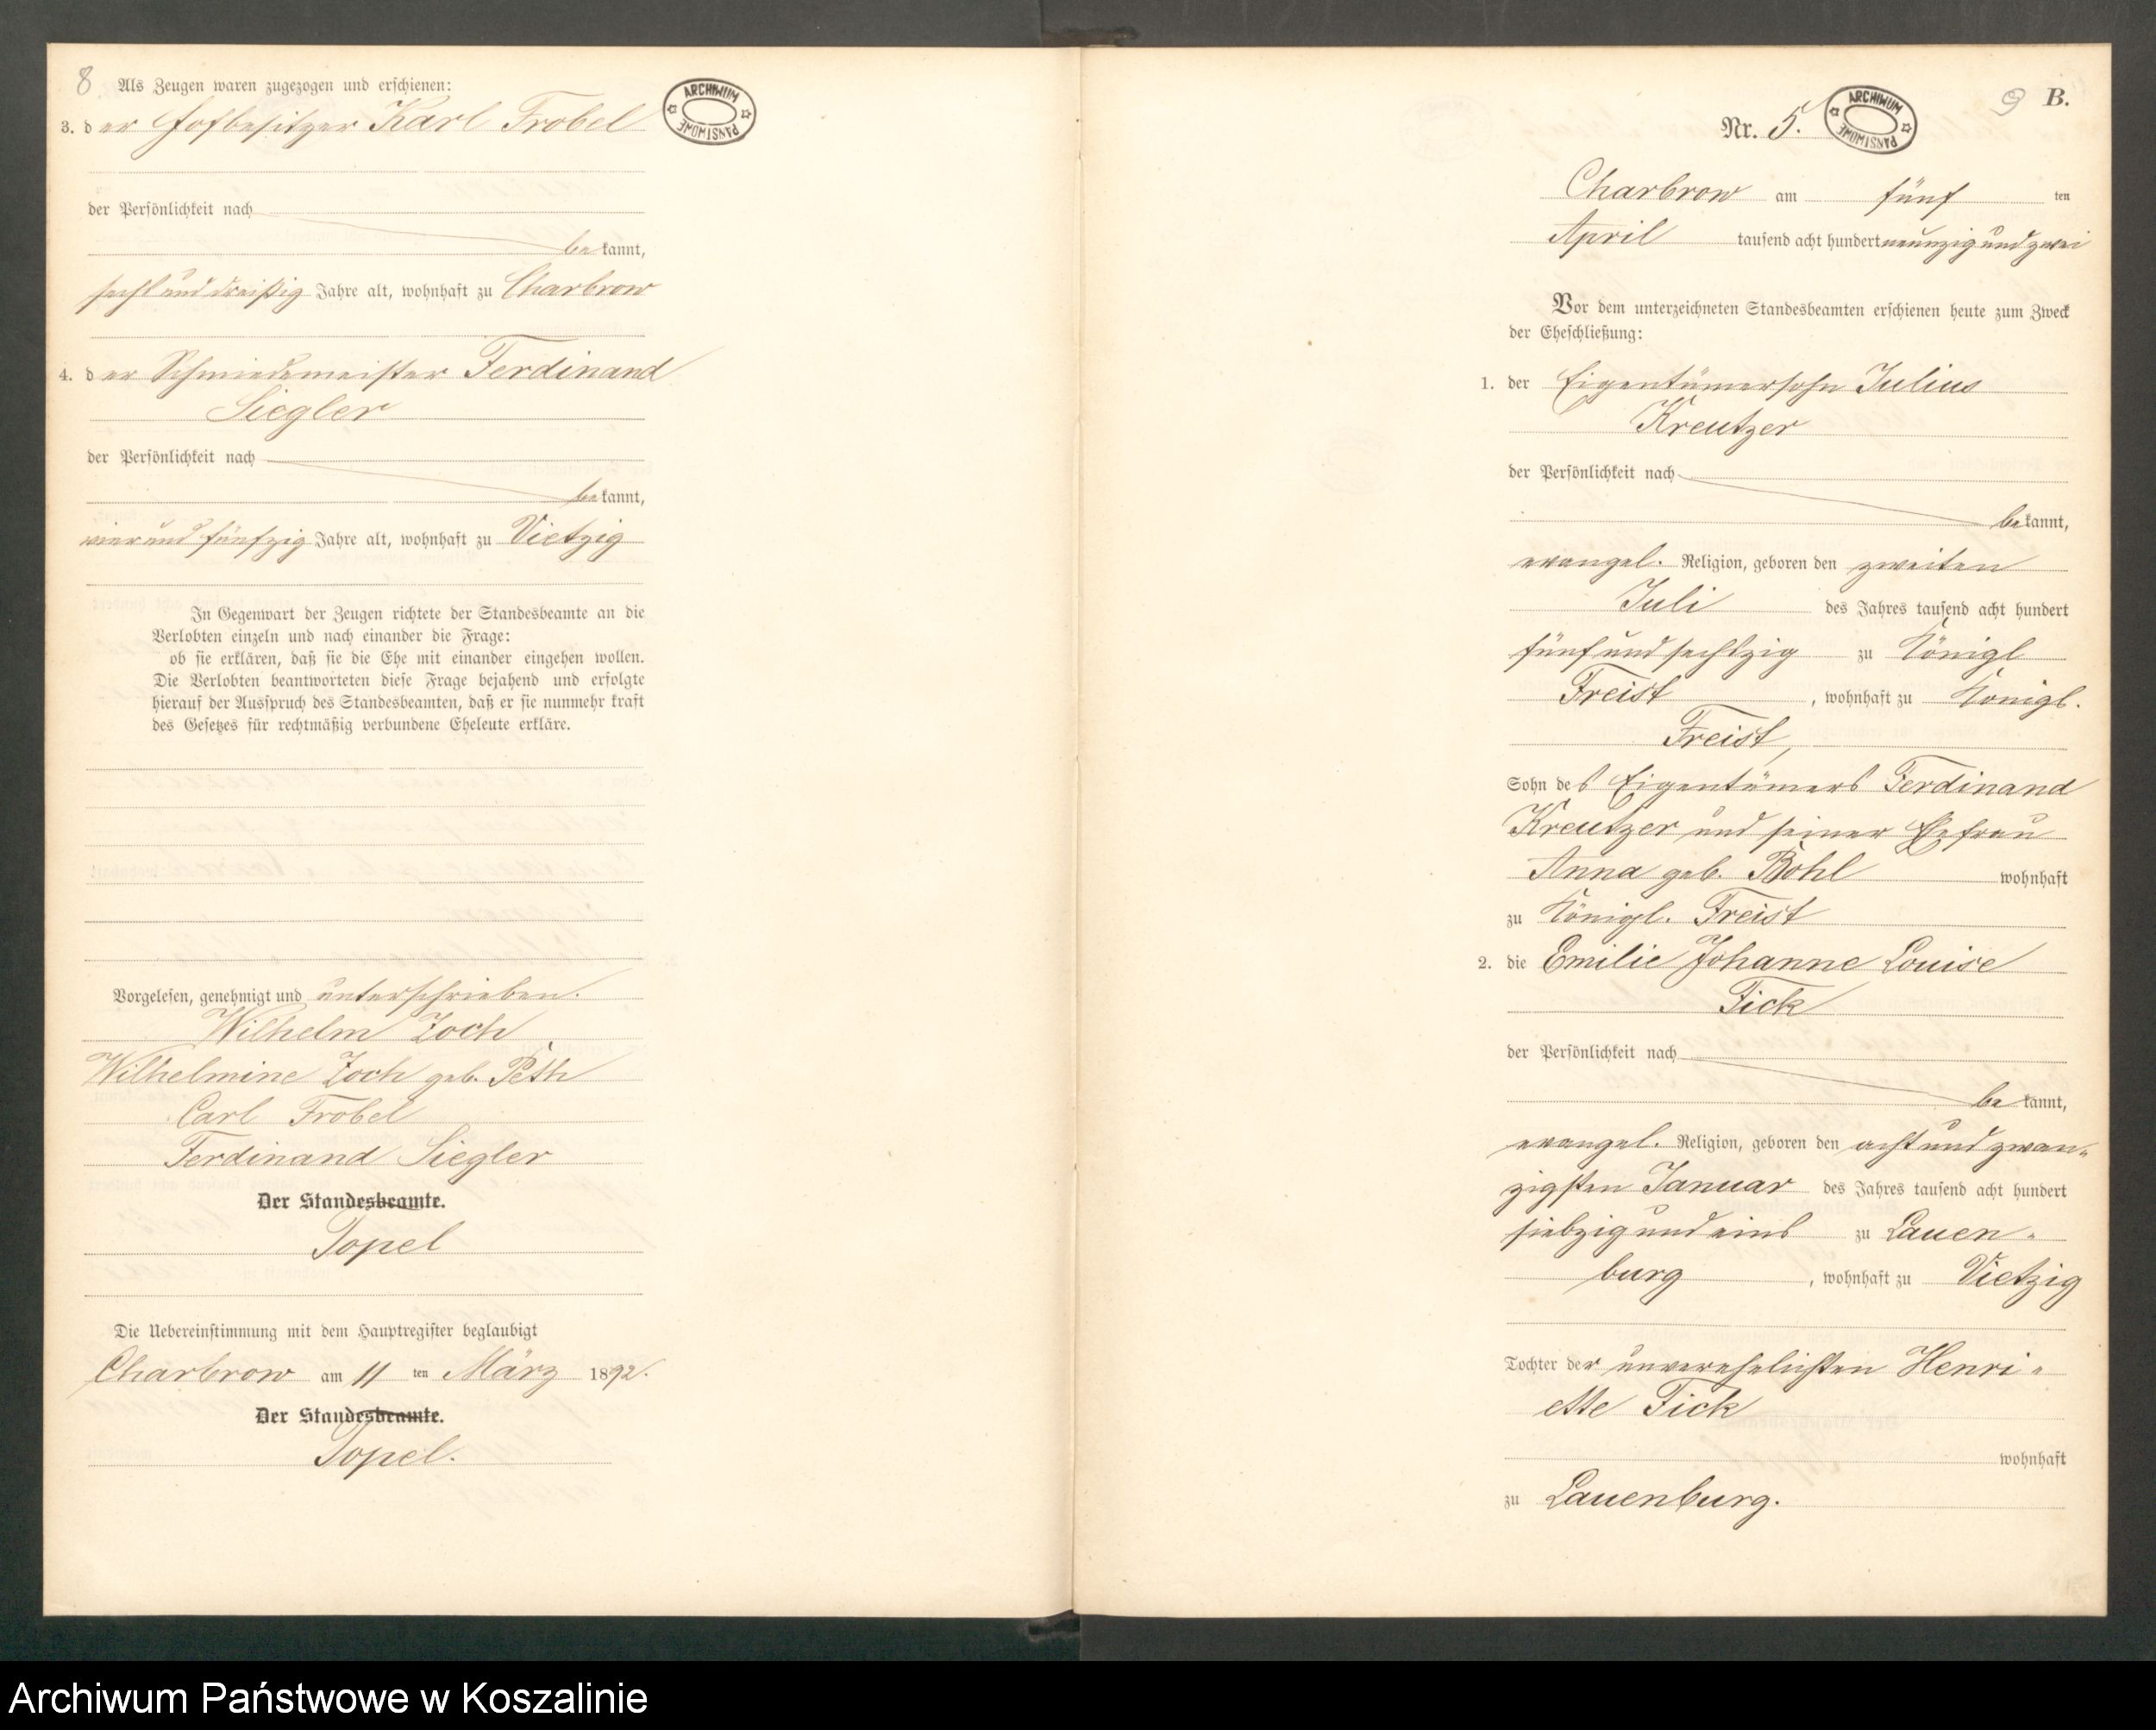 8 Als Zeugen waren zugezogen und erschienen:
3. der Hofbesitzer Karl Frobel
der Persönlichkeit nach
bekannt,
sechs und dreißig Jahre alt, wohnhaft zu Charbrow
4. der Schmiedemeister Ferdinand
Siegler
der Persönlichkeit nach
bekannt,
vier und fünfzig Jahre alt, wohnhaft zu Vietzig
In Gegenwart der Zeugen richtete der Standesbeamte an die
Verlobten einzeln und nach einander die Frage:
ob sie erklären, daß sie die Ehe mit einander eingehen wollen.
Die Verlobten beantworteten diese Frage bejahend und erfolgte
hierauf der Ausspruch des Standesbeamten, daß er sie nunmehr kraft
des Gesetzes für rechtmäßig verbundene Eheleute erkläre.
Vorgelesen, genehmigt und unterschrieben.
Wilhelm Zoch
Wilhelmine Zoch geb. Peth
Carl Frobel
Ferdinand Siegler
Der Standesbeamte.
Topel
Die Uebereinstimmung mit dem Hauptregister beglaubigt
Charbrow am 11 ten März 1892.
Der Standesbeamte.
Topel.
ARCHIWUM PAŃSTWOWE
9 B.
Nr. 5.
ARCHIWUM PAŃSTWOWE
Charbrow am fünf ten
April tausend acht hundert neunzig und zwei
Vor dem unterzeichneten Standesbeamten erschienen heute zum Zweck
der Eheschließung:
1. der Eigentümersohn Julius
Kreutzer
der Persönlichkeit nach
bekannt,
evangel. Religion, geboren den zweiten
Juli des Jahres tausend acht hundert
fünf und sechszig zu Königl
Freist, wohnhaft zu Königl.
Freist,
Sohn des Eigentümers Ferdinand
Kreutzer und seiner Ehefrau
Anna geb. Bohl wohnhaft
zu Königl. Freist
2. die Emilie Johanne Louise
Fick
der Persönlichkeit nach
bekannt,
evangel. Religion, geboren den acht und zwan-
zigsten Januar des Jahres tausend acht hundert
siebzig und eins zu Lauen-
burg, wohnhaft zu Vietzig
Tochter der unverehelichten Henri-
ette Fick
wohnhaft
zu Lauenburg.
Archiwum Państwowe w Koszalinie